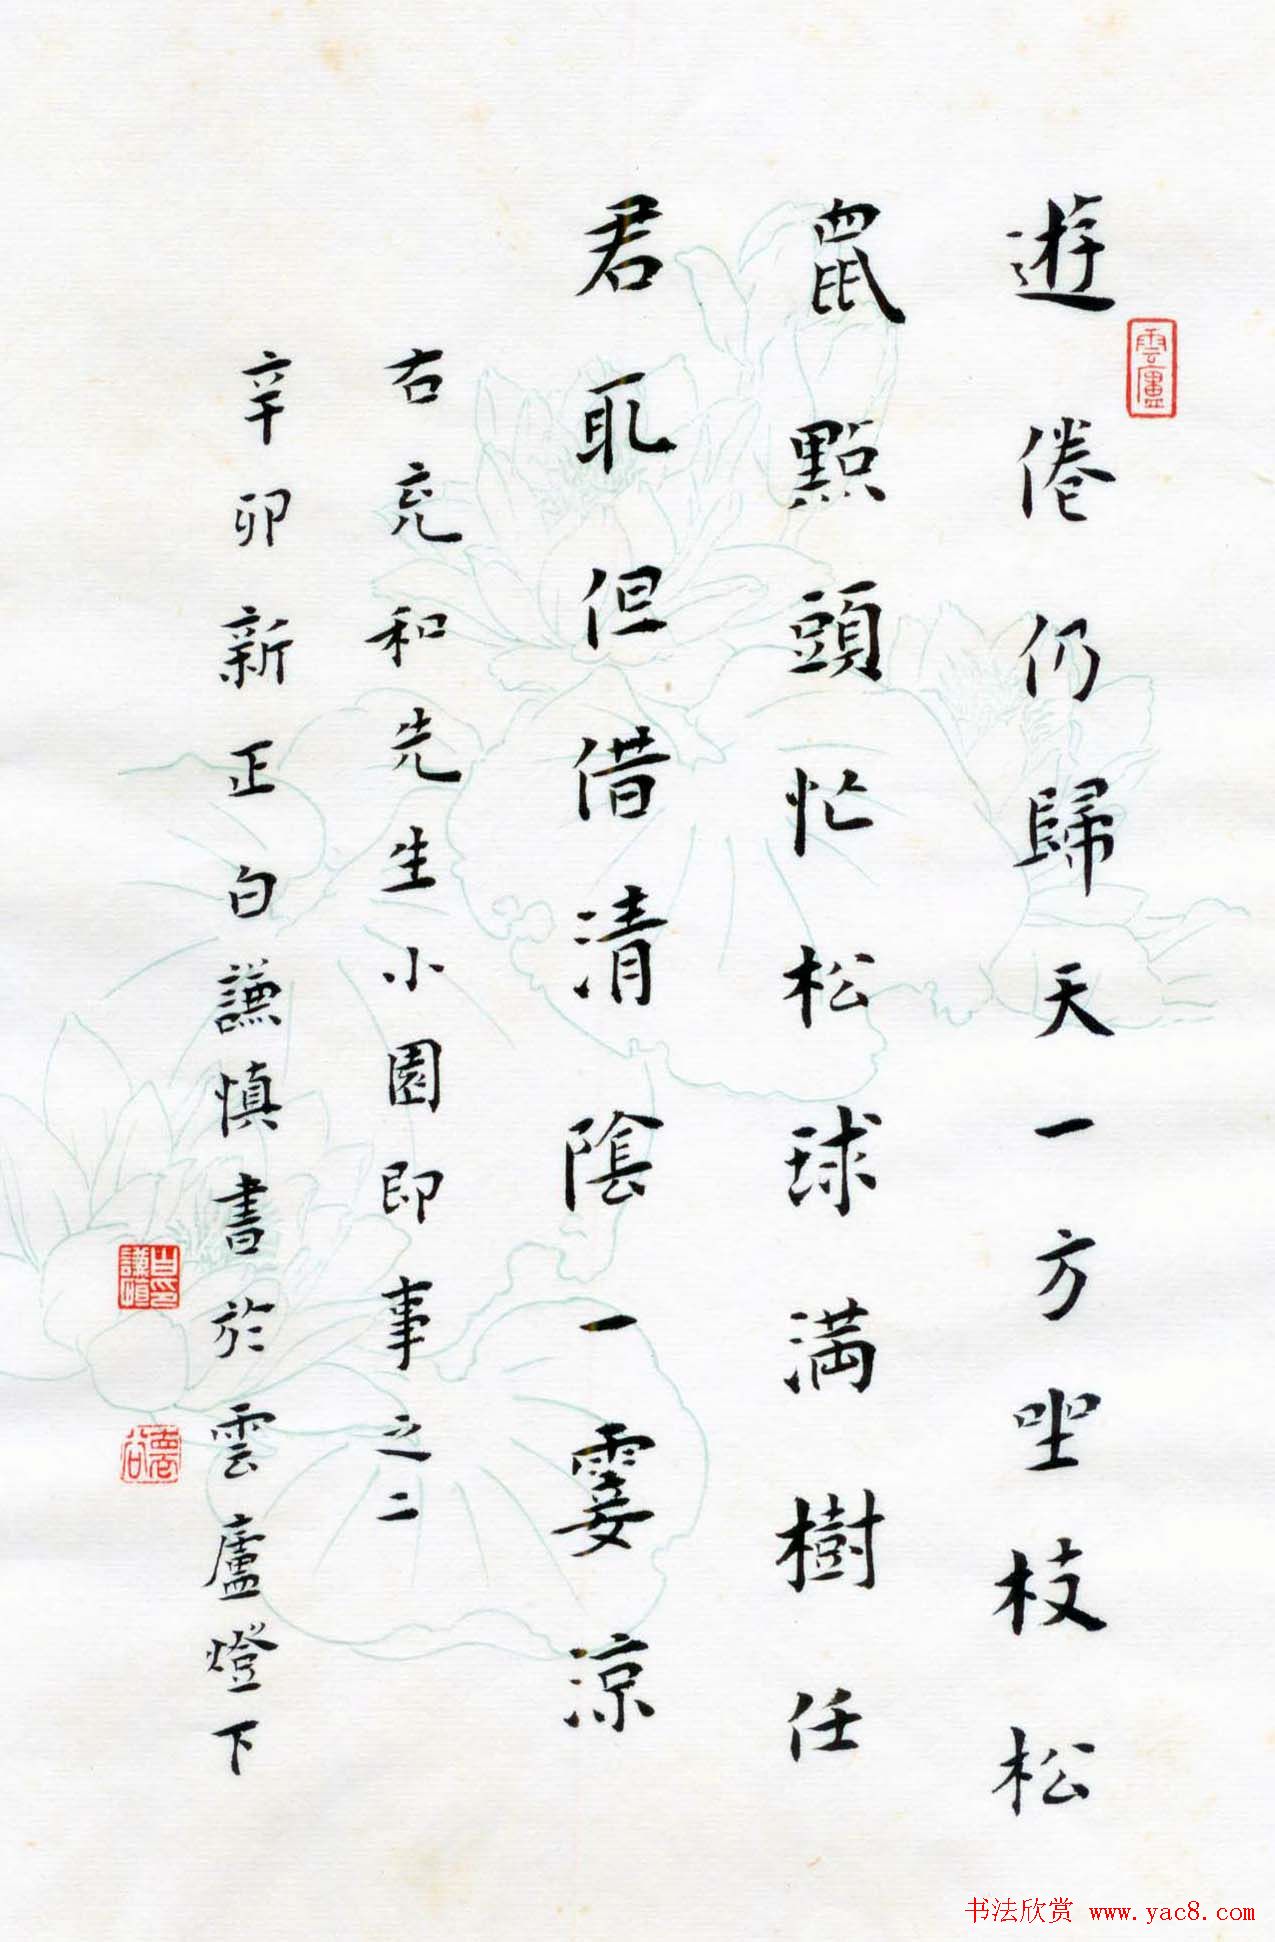 遊倦仍歸天一方坐枝松
鼠點頭忙松球滿樹任
君取但借清陰一霎涼
右充和先生小園即事之二
辛卯新正白謙慎書於雲廬燈下
雲廬
白謙慎印
书法欣赏 www.yac8.com